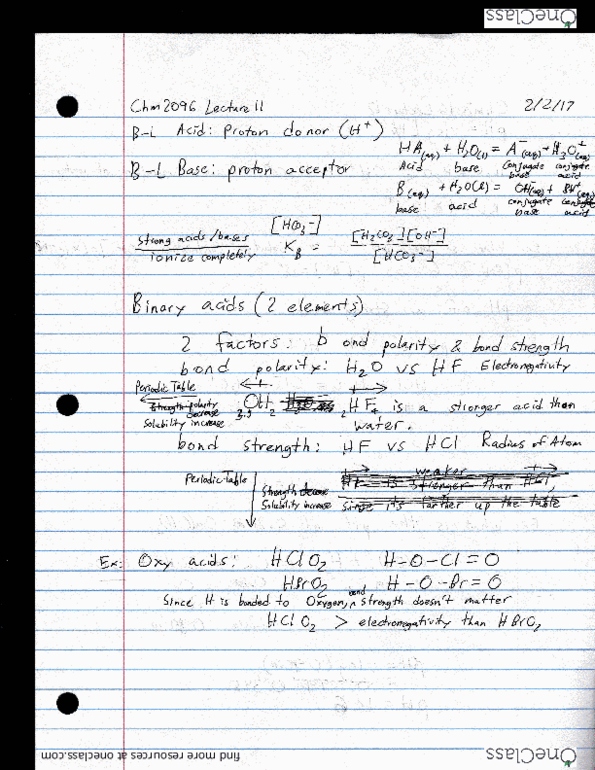 OneClass
Chm2096 Lecture 11 2/2/17
B-L Acid: Proton donor (H⁺)
HA(aq) + H₂O(l) = A⁻(aq) + H₃O⁺(aq)
Acid base conjugate base conjugate acid
B-L Base: proton acceptor
B(aq) + H₂O(l) = OH⁻(aq) + BH⁺(aq)
base acid conjugate base conjugate acid
Strong acids/bases
ionize completely
[HCO₃⁻]
K_B = [H₂CO₃][OH⁻] / [HCO₃⁻]
Binary acids (2 elements)
2 factors: bond polarity & bond strength
bond polarity: H₂O vs HF Electronegativity
Periodic Table
Strength polarity
decrease
Solubility increase
3.5 OH₂ HF₄ is a stronger acid than
water.
bond strength: HF vs HCl Radius of Atom
Periodic Table
Strength
Solubility increase
weaker
HF is stronger than HCl,
since it's farther up the table
Ex: Oxy acids: HClO₂ H-O-Cl=O
HBrO₂ H-O-Br=O
Since H is bonded to Oxygen, bond strength doesn't matter
HClO₂ > electronegativity than HBrO₂
find more resources at oneclass.com
OneClass